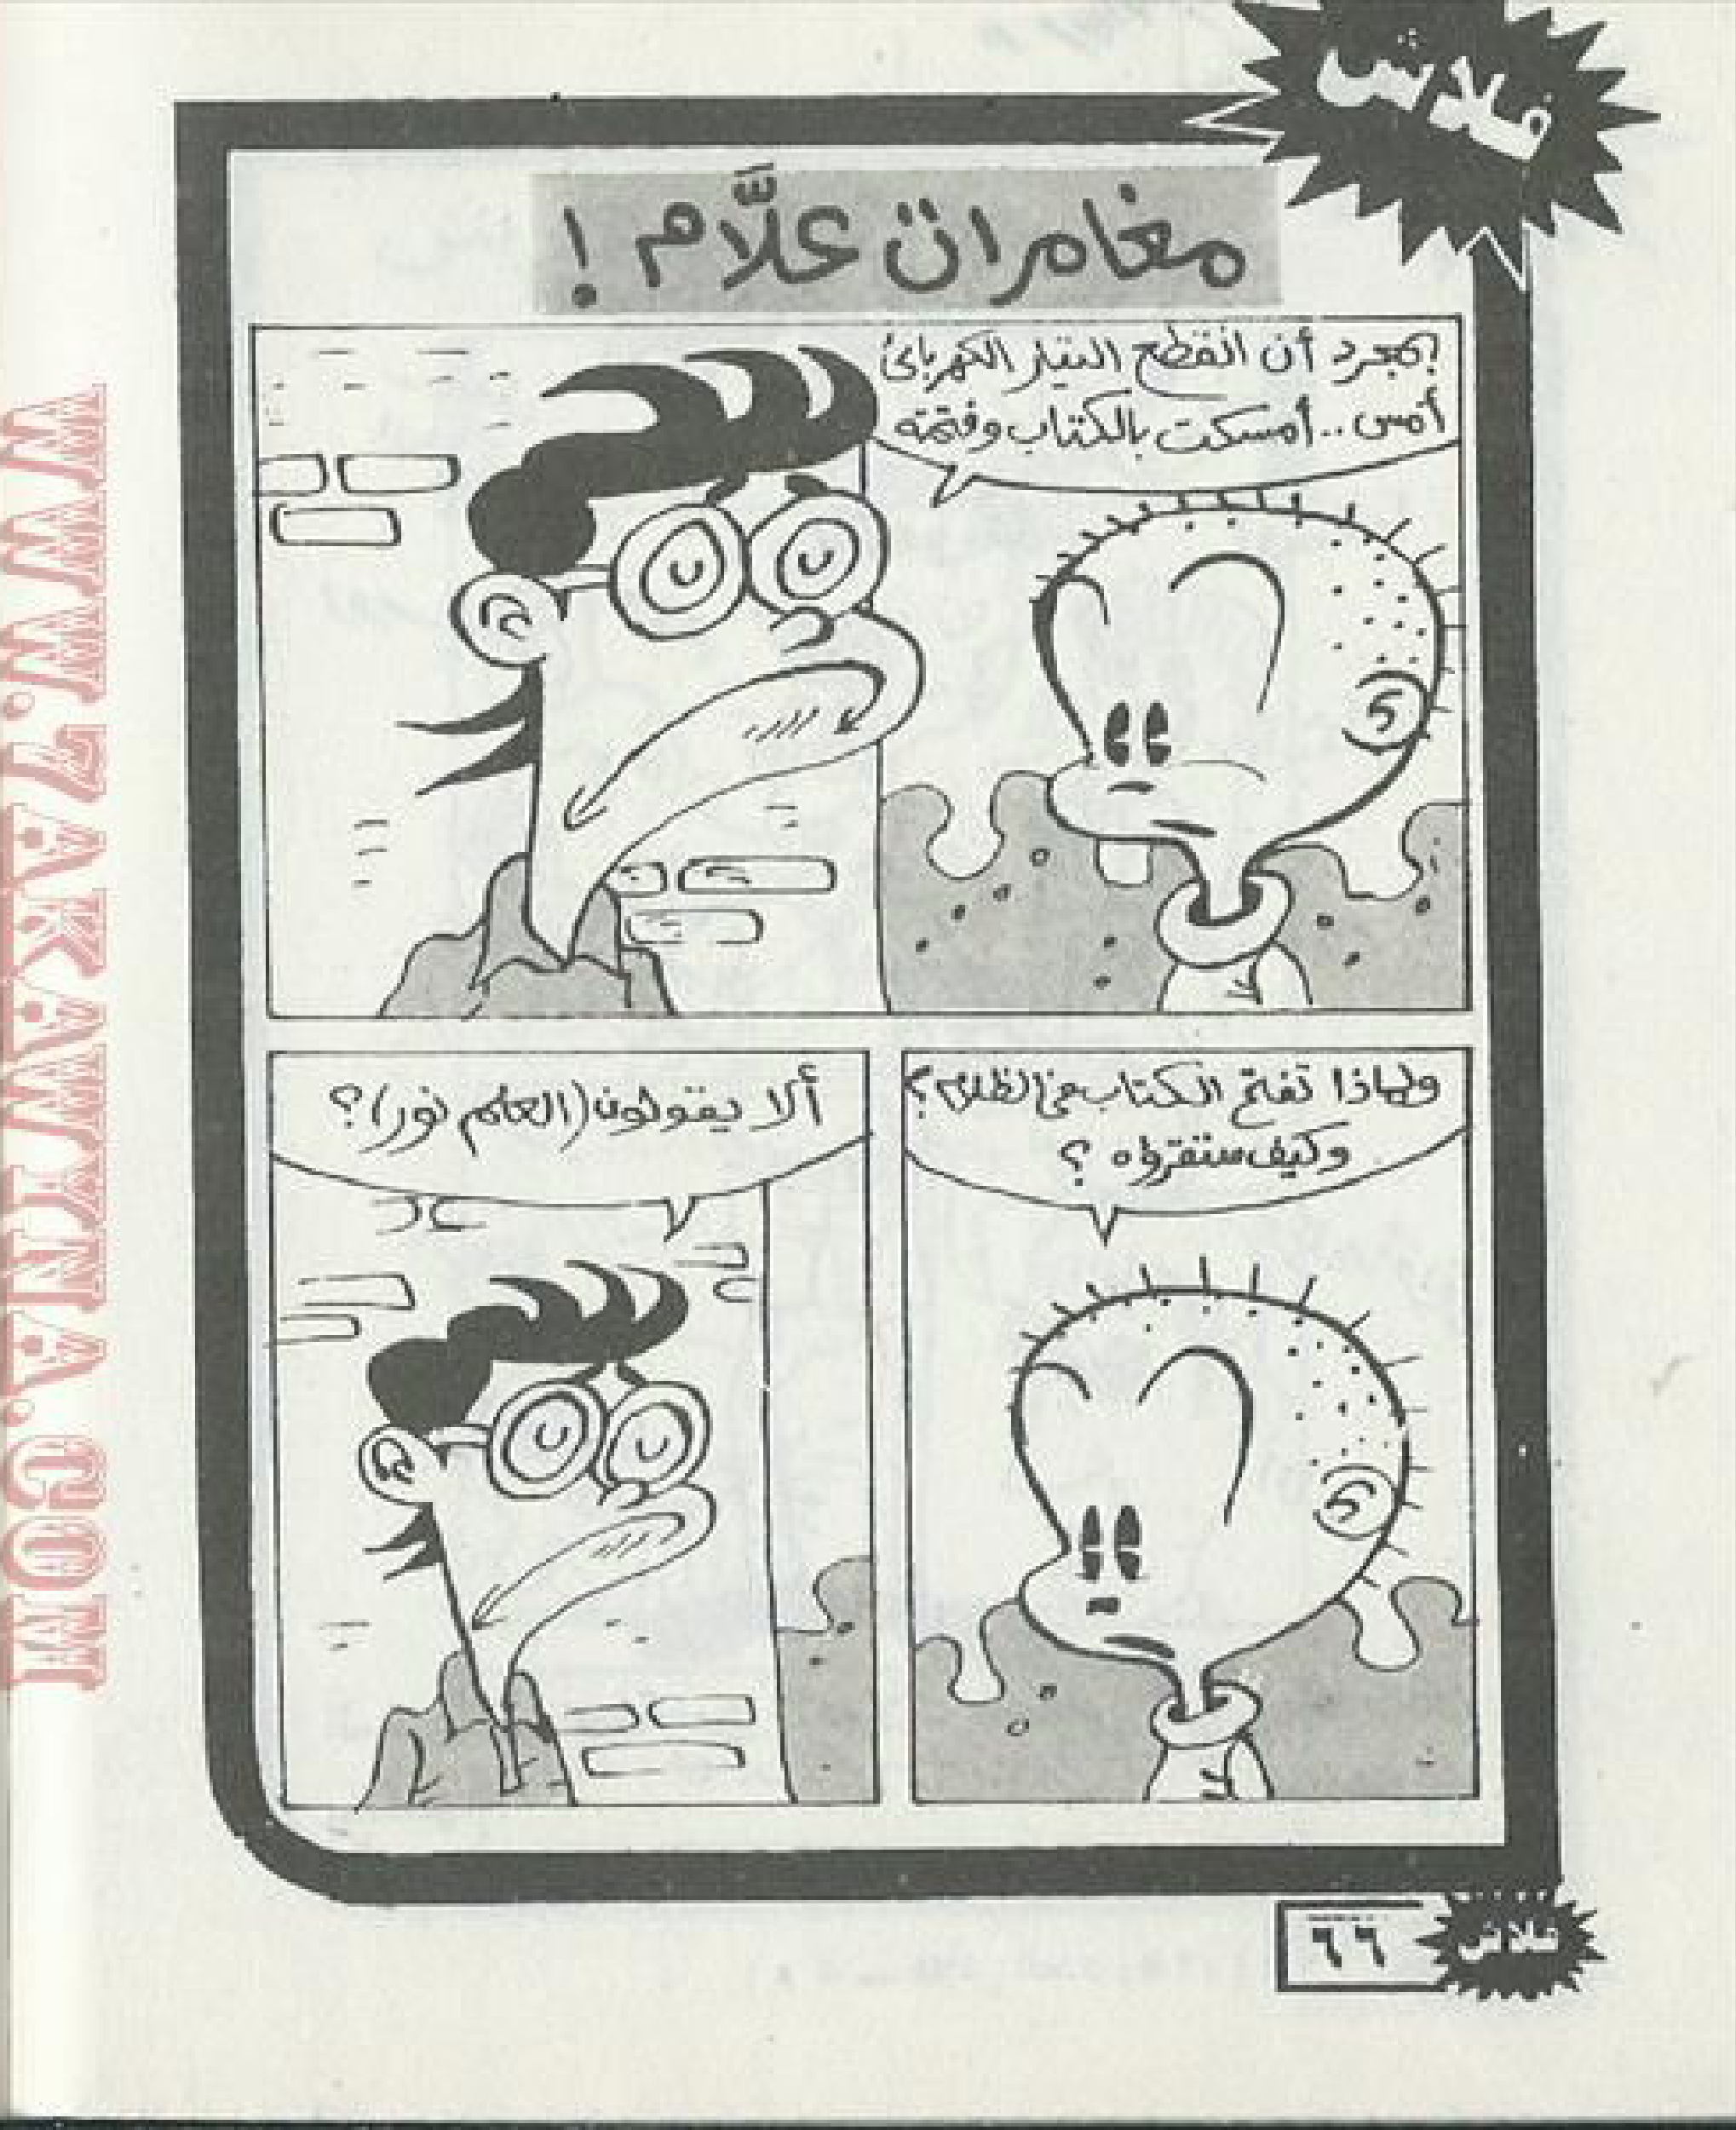 فلاش
مغامرات علَّام !
بمجرد أن انقطع التيار الكهربائى
أمس .. أمسكت بالكتاب وفتحته
ولماذا تفتح الكتاب فى الظلام ؟
وكيف ستقرؤه ؟
ألا يقولون (العلم نور) ؟
٦٦
فلاش
WWW.7AKAWINA.COM